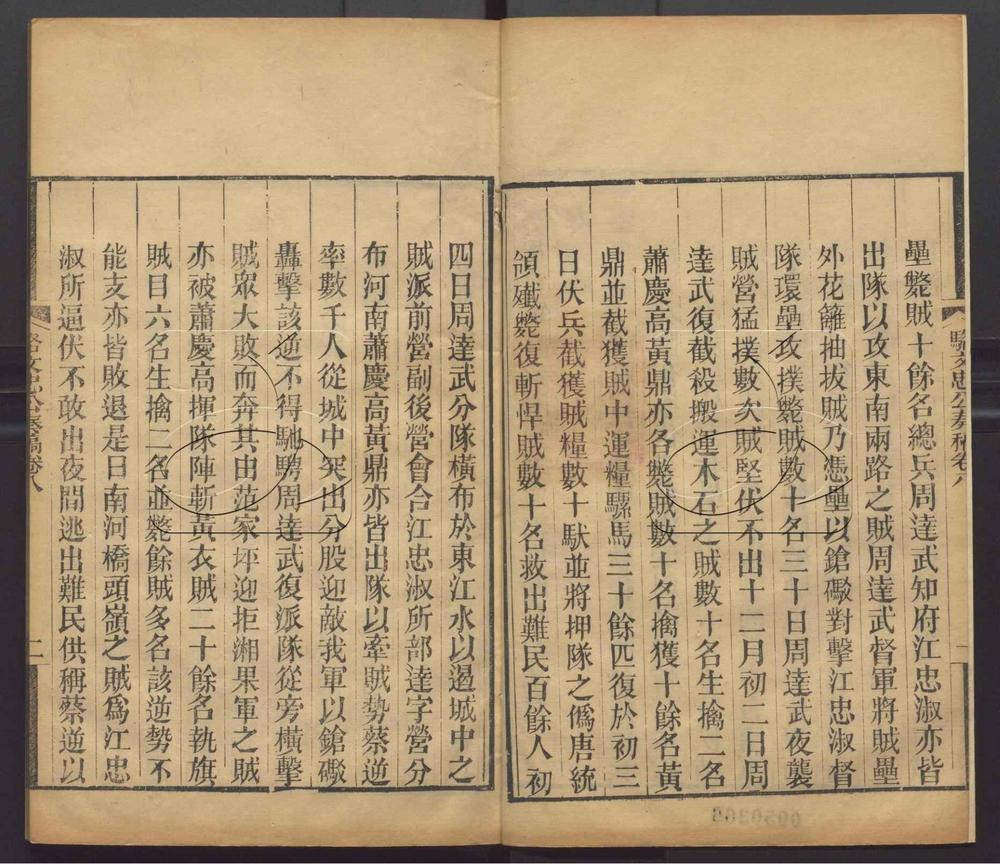 壘斃賊十餘名總兵周達武知府江忠淑亦皆
出隊以攻東南兩路之賊周達武督軍將賊壘
外花籬抽拔賊乃憑壘以鎗礮對擊江忠淑督
隊環壘攻撲斃賊數十名三十日周達武夜襲
賊營猛撲數次賊堅伏不出十二月初二日周
達武復截殺搬運木石之賊數十名生擒二名
蕭慶高黃鼎亦各斃賊數十名擒獲十餘名黃
鼎並截獲賊中運糧騾馬三十餘匹復於初三
日伏兵截獲賊糧數十馱並將押隊之僞唐統
領殲斃復斬悍賊數十名救出難民百餘人初
四日周達武分隊橫布於東江水以遏城中之
賊派前營副後營會合江忠淑所部達字營分
布河南蕭慶高黃鼎亦皆出隊以牽賊勢蔡逆
率數千人從城中突出分股迎敵我軍以鎗礮
轟擊該逆不得馳騁周達武復派隊從旁橫擊
賊眾大敗而奔其由范家坪迎拒湘果軍之賊
亦被蕭慶高揮隊陣斬黃衣賊二十餘名執旗
賊目六名生擒二名並斃餘賊多名該逆勢不
能支亦皆敗退是日南河橋頭嶺之賊爲江忠
淑所逼伏不敢出夜間逃出難民供稱蔡逆以
駱文忠公奏稿卷八
一
駱文忠公奏稿卷八
二
0050306